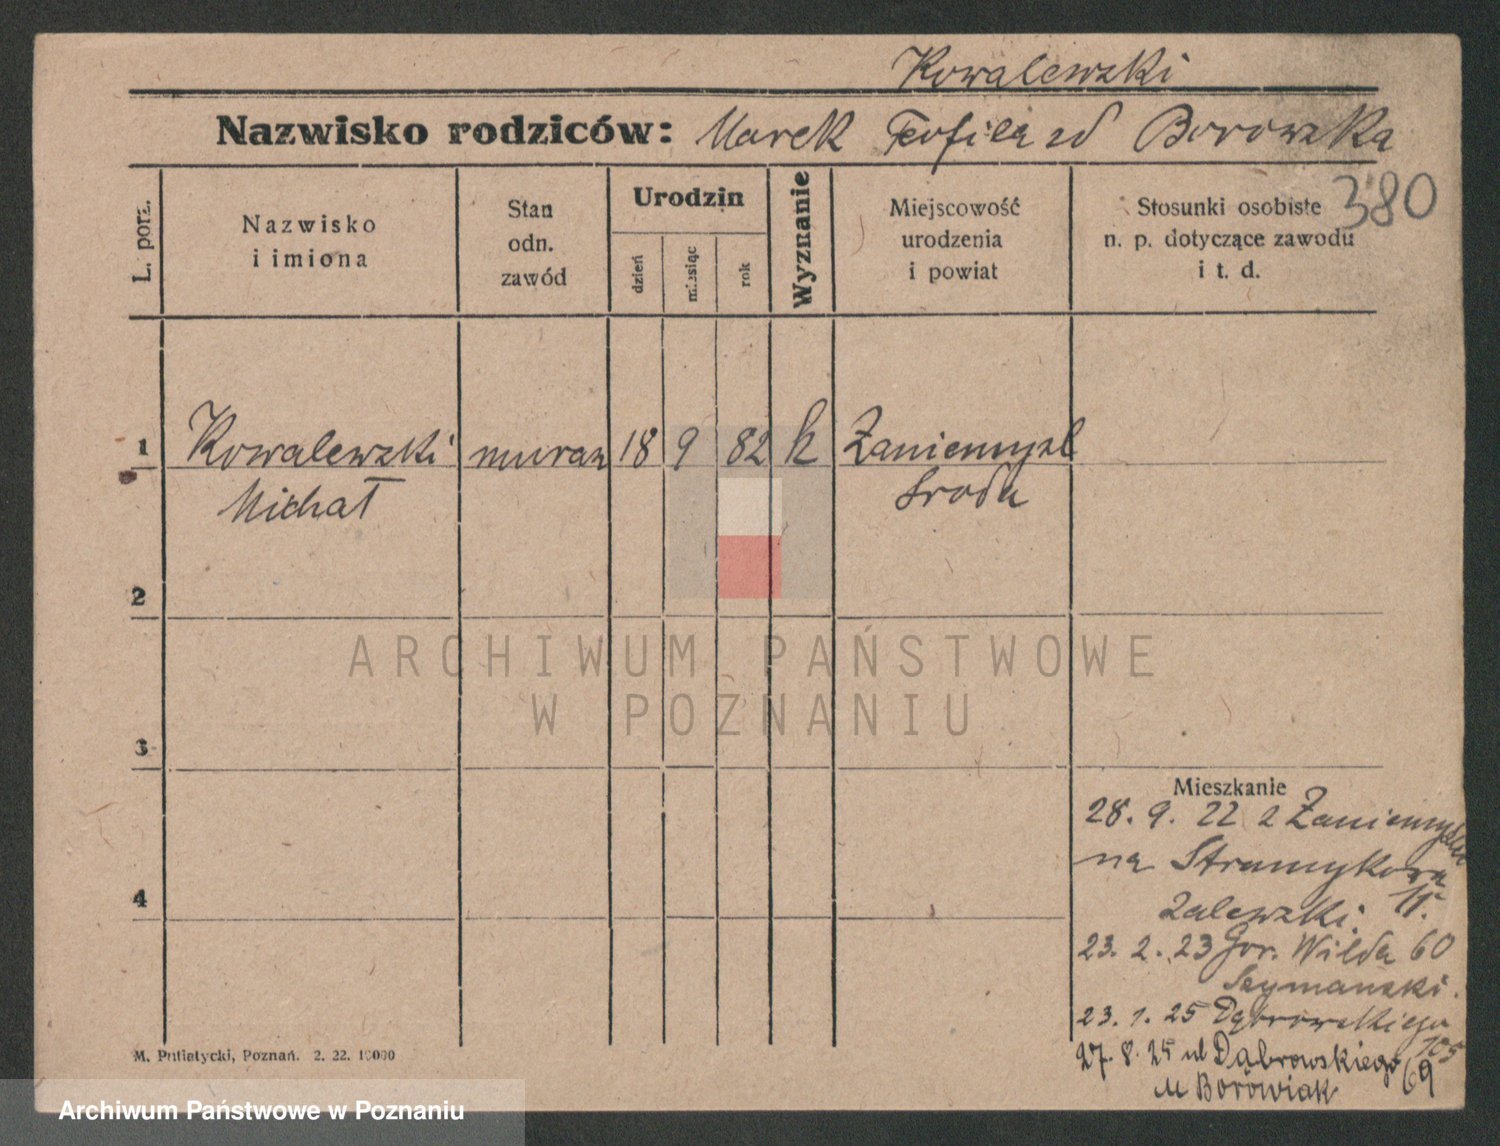 Kowalewski
Nazwisko rodziców: Marek Teofila zd Borowska
380
L. porz.
Nazwisko i imiona
Stan odn. zawód
Urodzin
dzień
miesiąc
rok
Wyznanie
Miejscowość urodzenia i powiat
Stosunki osobiste n. p. dotyczące zawodu i t. d.
1 Kowalewski murarz 18 9 82 k Zaniemysl
Michał Sroda
2
3
4
Mieszkanie
28. 9. 22 z Zaniemysla
na Strumykowa
Zalewski. 11.
23. 2. 23 Gor. Wilda 60
Szymanski.
23. 1. 25 Dąbrowskiego
105
27. 8. 25 ul Dąbrowskiego 69
u Borowiak
M. Putiatycki, Poznań. 2. 22. 10000
ARCHIWUM PAŃSTWOWE
W POZNANIU
Archiwum Państwowe w Poznaniu